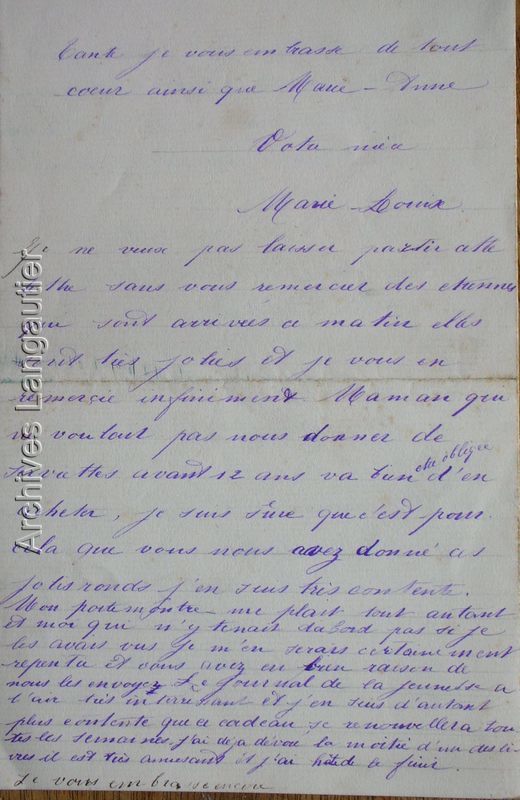 Tante je vous embrasse de tout
coeur ainsi que Marie-Anne
Votre nièce
Marie-Louise.
Je ne veux pas laisser partir cette
lettre sans vous remercier des etrennes
qui sont arrivées ce matin elles
sont très jolies et je vous en
remercie infiniment Maman qui
ne voulait pas nous donner de
serviettes avant 12 ans va bien etre obligée d'en
acheter, je suis sûre que c'est pour
cela que vous nous avez donné ces
jolis ronds j'en suis très contente.
Mon porte montre me plait tout autant
et moi qui n'y tenait dabord pas si je
les avais vus je m'en serais certainement
repentie et vous avez eu bien raison de
nous les envoyez. Le Journal de la Jeunesse a
l'air très intéressant et j'en suis d'autant
plus contente que ce cadeau se renouvellera tou-
tes les semaines, j'ai déja dévoré la moitié d'un des li-
vres il est très amusant et j'ai hâte de le finir.
Je vous embrasse encore
Archives Langautier